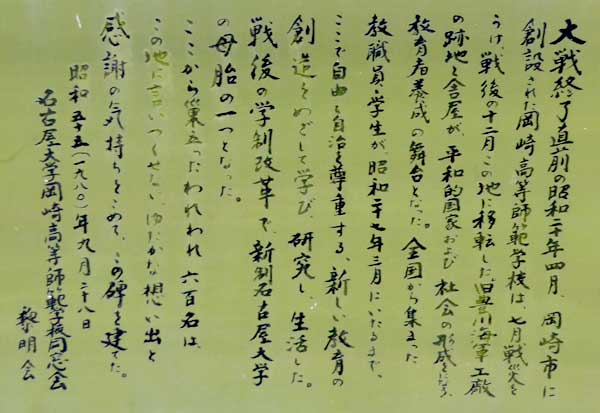 大戦終了直前の昭和二十年四月、岡崎市に
創設された岡崎高等師範学校は、七月戦災を
うけ、戦後の十二月この地に移転した。旧豊川海軍工廠
の跡地と舎屋が、平和的国家および社会の形成になう
教育者養成の舞台となった。全国から集まった
教職員・学生が、昭和二十七年三月にいたるまで、
ここで自由と自治を尊重する、新しい教育の
創造をめざして学び、研究し、生活した。
戦後の学制改革で、新制名古屋大学
の母胎の一つとなった。
ここから巣立ったわれわれ六百名は、
この地に言いつくせない、ゆたかな想い出と
感謝の気持ちをこめて、この碑を建てた。
昭和五十五(一九八〇)年九月二十八日
名古屋大学岡崎高等師範学校同窓会
黎明会